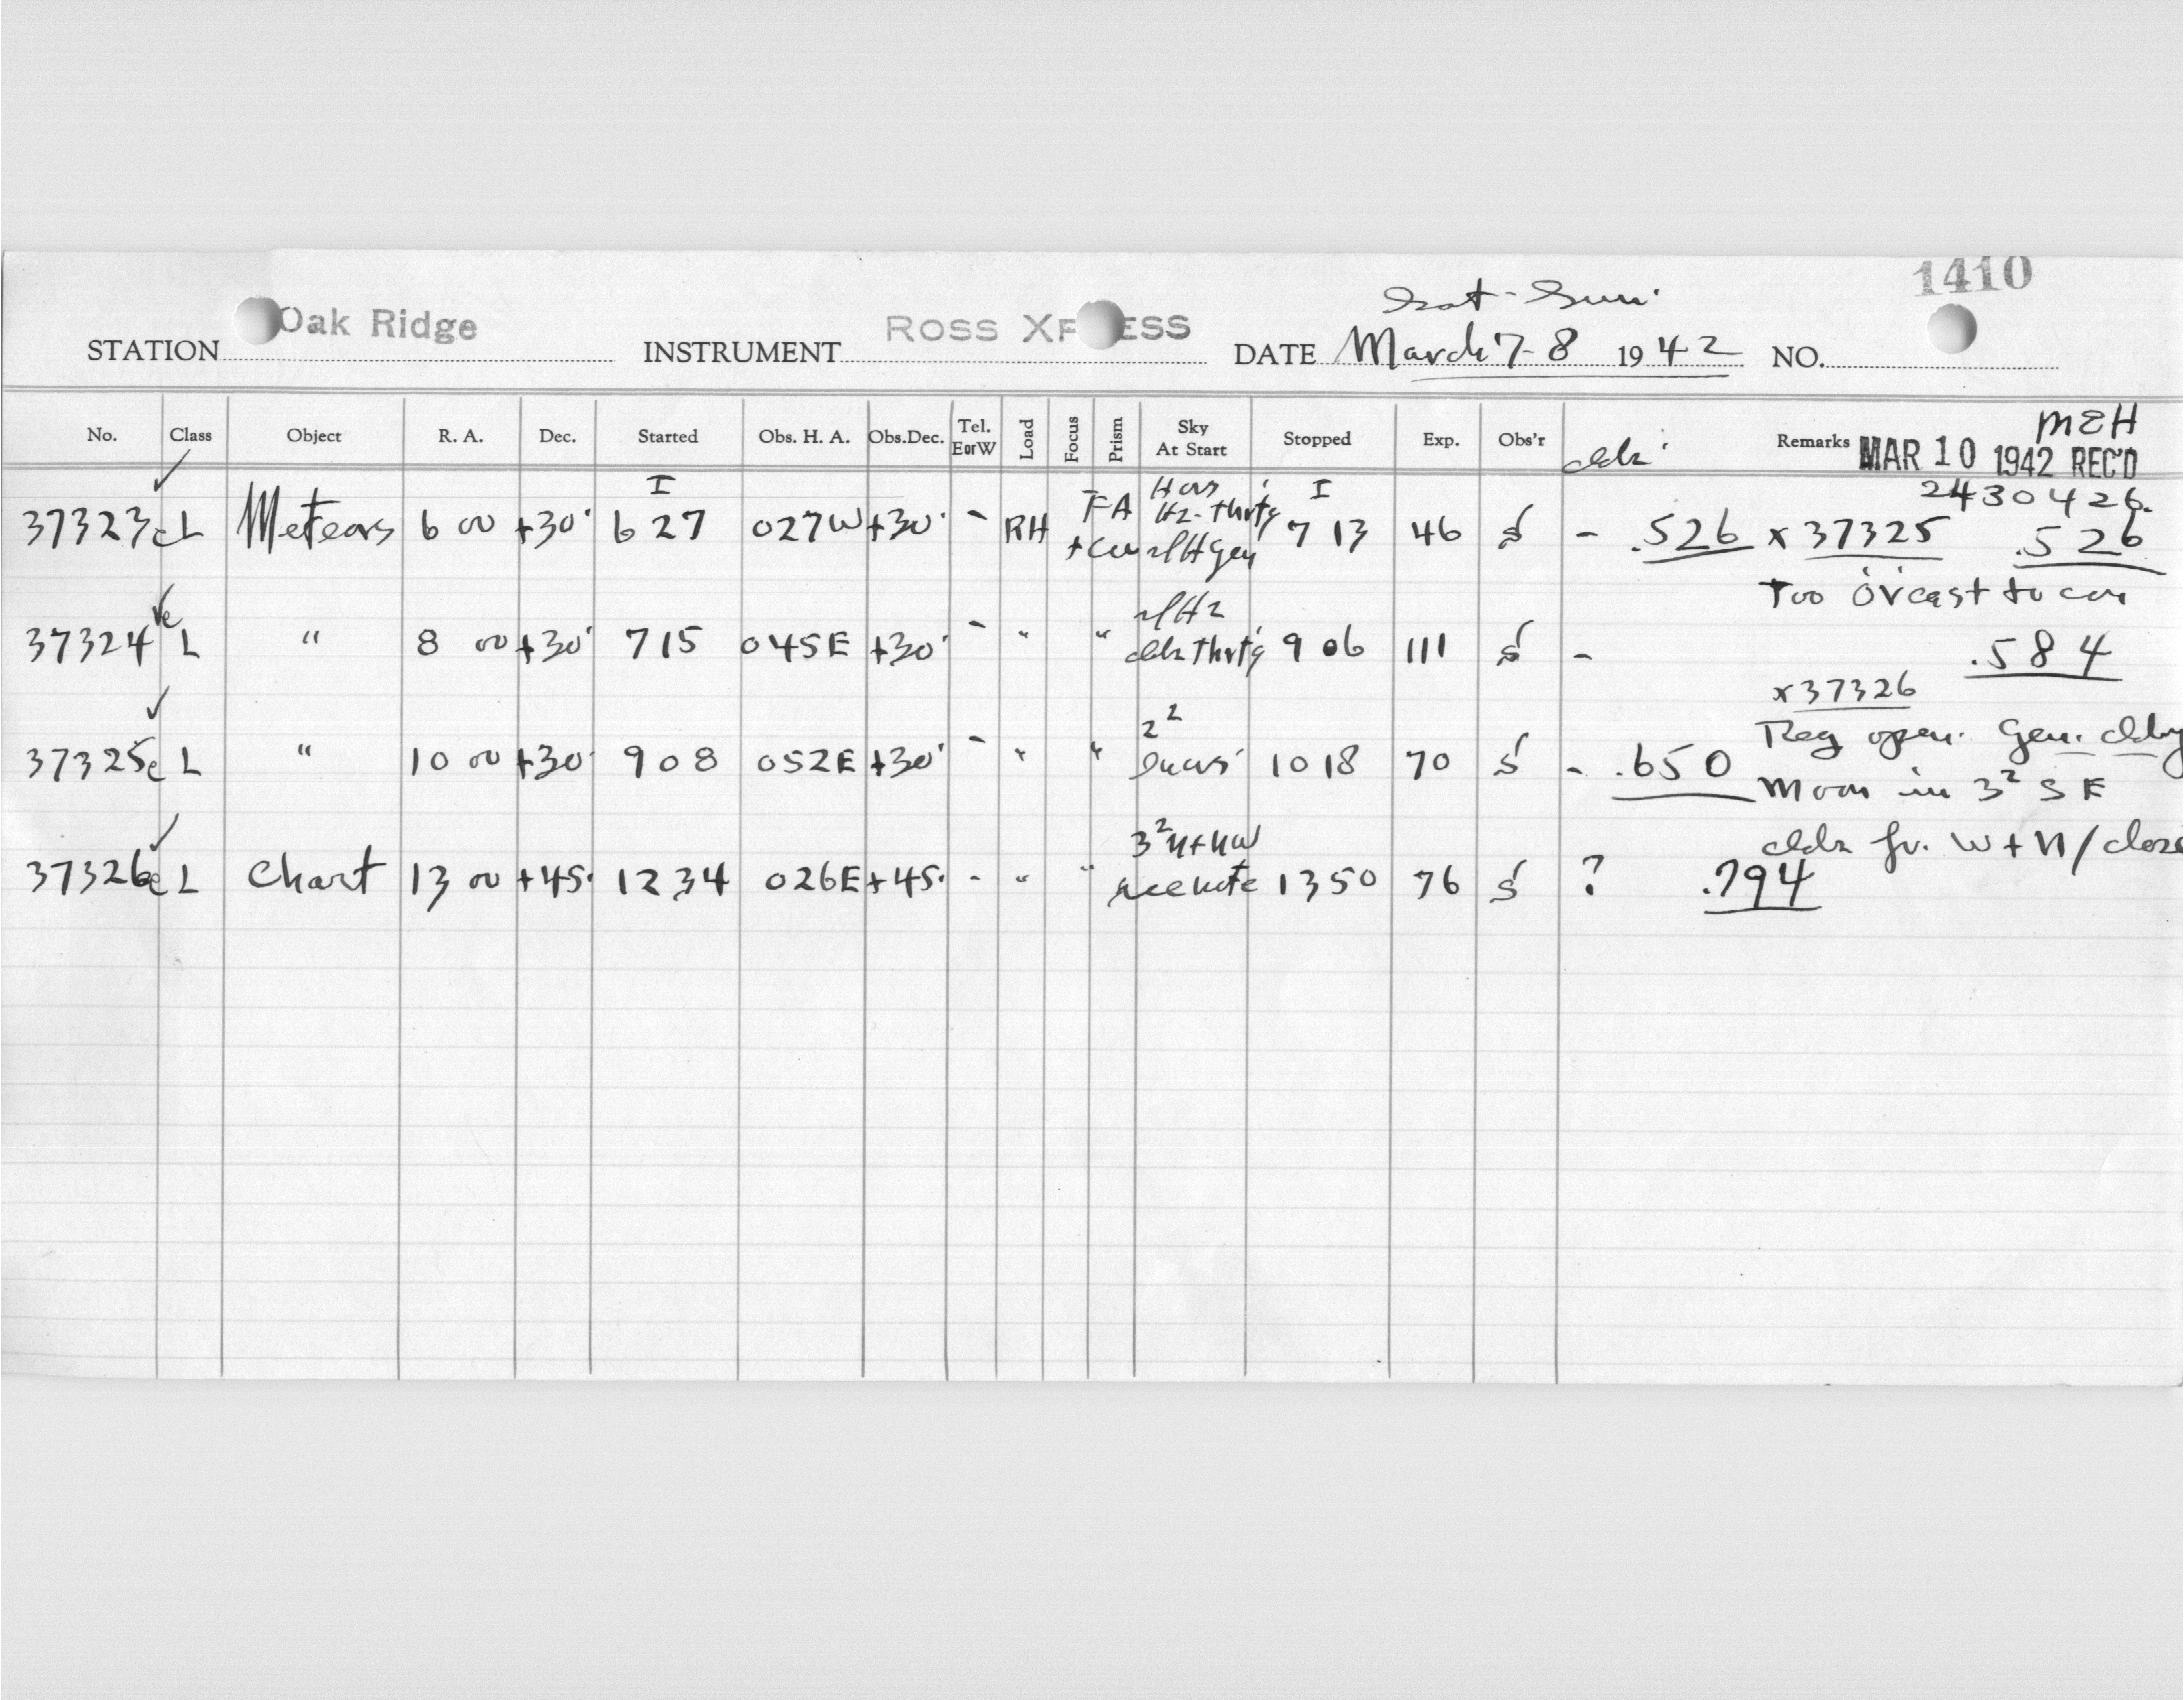 1410
Sat-Sun.
STATION Oak Ridge INSTRUMENT ROSS XPRESS DATE March 7-8 1942 NO.
MEH
No. Class Object R. A. Dec. Started Obs. H. A. Obs.Dec. Tel. EorW Load Focus Prism Sky At Start Stopped Exp. Obs'r Remarks MAR 10 1942 REC'D
I I 2430426.
37323 c L Meteors 6 00 +30° 6 27 027W +30° - RH FA 7 13 46 S - .526 x 37325 .526
Too ov'cast to con
37324 c L " 8 00 +30° 7 15 045E +30° - " " 9 06 111 S - .584
x 37326
37325 c L " 10 00 +30° 9 08 052E +30° - " " 2² 10 18 70 S - .650 Reg open. Gen. cldy
Moon in 3² SE
3² N+NW cldr fr. W + N / close
37326 c L Chart 13 00 +45° 12 34 026E +45° - " " see note 13 50 76 S ? .794